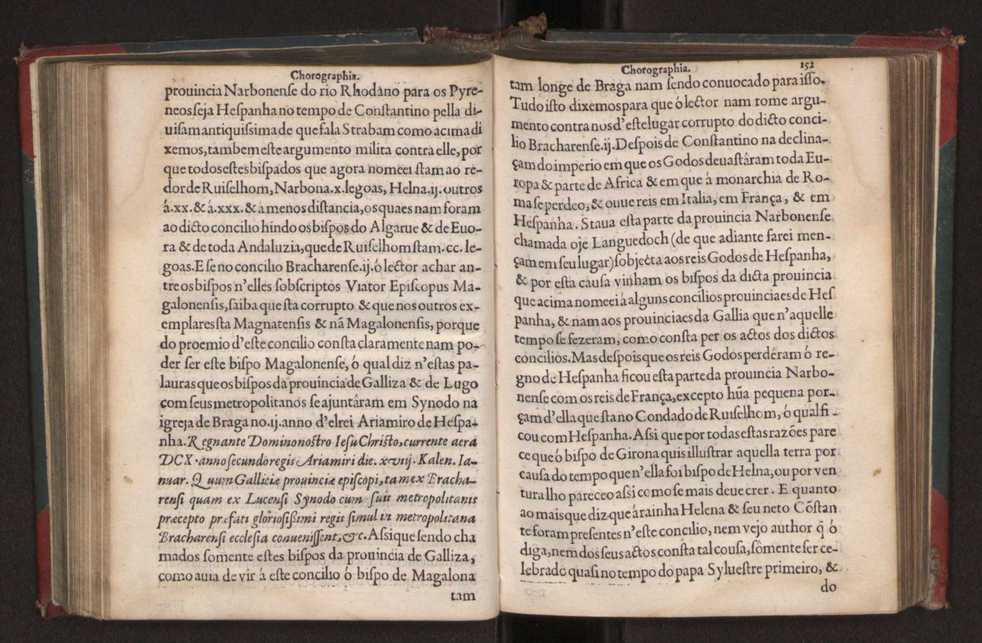 Chorographia.
prouincia Narbonense do rio Rhodano para os Pyre-
neos seja Hespanha no tempo de Constantino pella di-
uisam antiquissima de que fala Strabam como acima di
xemos, tambem este argumento milita contra elle, por
que todos estes bispados que agora nomeei stam ao re-
dor de Ruiselhom, Narbona .x. legoas, Helna .ij. outros
á .xx. & á .xxx. & á menos distancia, os quaes nam foram
ao dicto concilio hindo os bispos do Algarue & de Euo-
ra & de toda Andaluzia, que de Ruiselhom stam .cc. le-
goas. E se no concilio Bracharense .ij. ó lector achar an-
tre os bispos n'elles sobscriptos Viator Episcopus Ma-
galonensis, saiba que sta corrupto & que nos outros ex-
emplares sta Magnatensis & nã Magalonensis, porque
do proemio d'este concilio consta claramente nam po-
der ser este bispo Magalonense, ó qual diz n'estas pa-
lauras que os bispos da prouincia de Galliza & de Lugo
com seus metropolitanos se ajuntâram em Synodo na
igreja de Braga no .ij. anno d'elrei Ariamiro de Hespa-
nha. Regnante Domino nostro Iesu Christo, currente aera
DCX. anno secundo regis Ariamiri die. xviij. Kalen. Ia-
nuar. Quum Galliciæ prouinciæ episcopi, tam ex Bracha-
rensi quam ex Lucensi Synodo cum suis metropolitanis
præcepto præfati gloriosissimi regis simul in metropolitana
Bracharensi ecclesia conuenissent, &c. Assi que sendo cha
mados somente estes bispos da prouincia de Galliza,
como auia de vir á este concilio ó bispo de Magalona
tam
Chorographia. 152
tam longe de Braga nam sendo conuocado para isso.
Tudo isto dixemos para que ó lector nam tome argu-
mento contra nos d'este lugar corrupto do dicto conci-
lio Bracharense .ij. Despois de Constantino na declina-
çam do imperio em que os Godos deuastâram toda Eu-
ropa & parte de Africa & em que á monarchia de Ro-
ma se perdeo, & ouue reis em Italia, em França, & em
Hespanha. Staua esta parte da prouincia Narbonense
chamada oje Languedoch (de que adiante farei men-
çam em seu lugar) sobjecta aos reis Godos de Hespanha,
& por esta causa vinham os bispos da dicta prouincia
que acima nomeei á alguns concilios prouinciaes de Hes
panha, & nam aos prouinciaes da Gallia que n'aquelle
tempo se fezeram, como consta per os actos dos dictos
concilios. Mas despois que os reis Godos perdêram ó re-
gno de Hespanha ficou esta parte da prouincia Narbo-
nense com os reis de França, excepto hũa pequena por-
çam d'ella que sta no Condado de Ruiselhom, ó qual fi-
cou com Hespanha. Assi que por todas estas razões pare
ce que ó bispo de Girona quis illustrar aquella terra por
causa do tempo que n'ella foi bispo de Helna, ou por ven
tura lho pareceo assi como se mais deue crer. E quanto
ao mais que diz que á rainha Helena & seu neto Cõstan
te foram presentes n'este concilio, nem vejo author q̃ ó
diga, nem dos seus actos consta tal cousa, sômente ser ce-
lebrado quasi no tempo do papa Syluestre primeiro, &
do